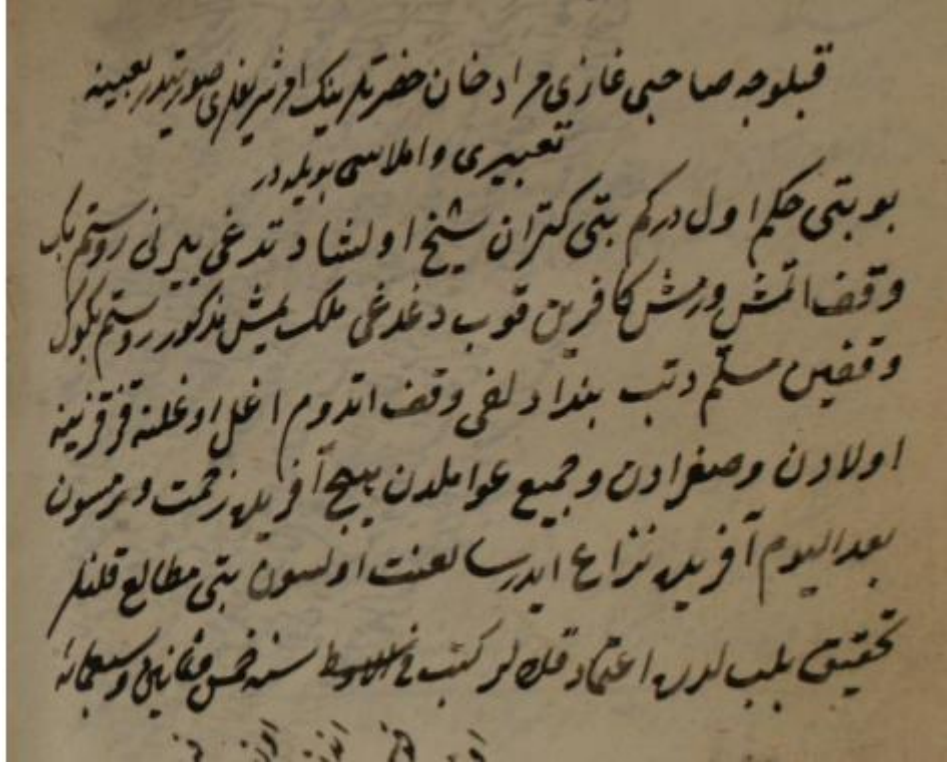 قبلوجه صاحبی غازی مراد خان حضرتلرینک امر شریفلری صورتیدر بعینه
تعبیری و املاسی بویله در
بو بتی حکم اول درکم بتی کتران شیخ اولشاد تدغی یرنی روستم بک
وقف اتمش ورمش کافرین قوب دغدغی ملک یمش مذکور روستم بکوک
وقفین مسلم دتب بنداد لغی وقف اتدوم اغل اوغلنه قز قزینه
اولادن وصغرادن و جمیع عواملدن هیچ آفریده زحمت ورمسون
بعد الیوم آفریده نزاع ایدرسا لعنت اولسون بتی مطالع قلنلر
تحقیق بلب لدن اعتماد قلالر کتب فی اواسط سنه خمس و ثمانین و سبعمائه